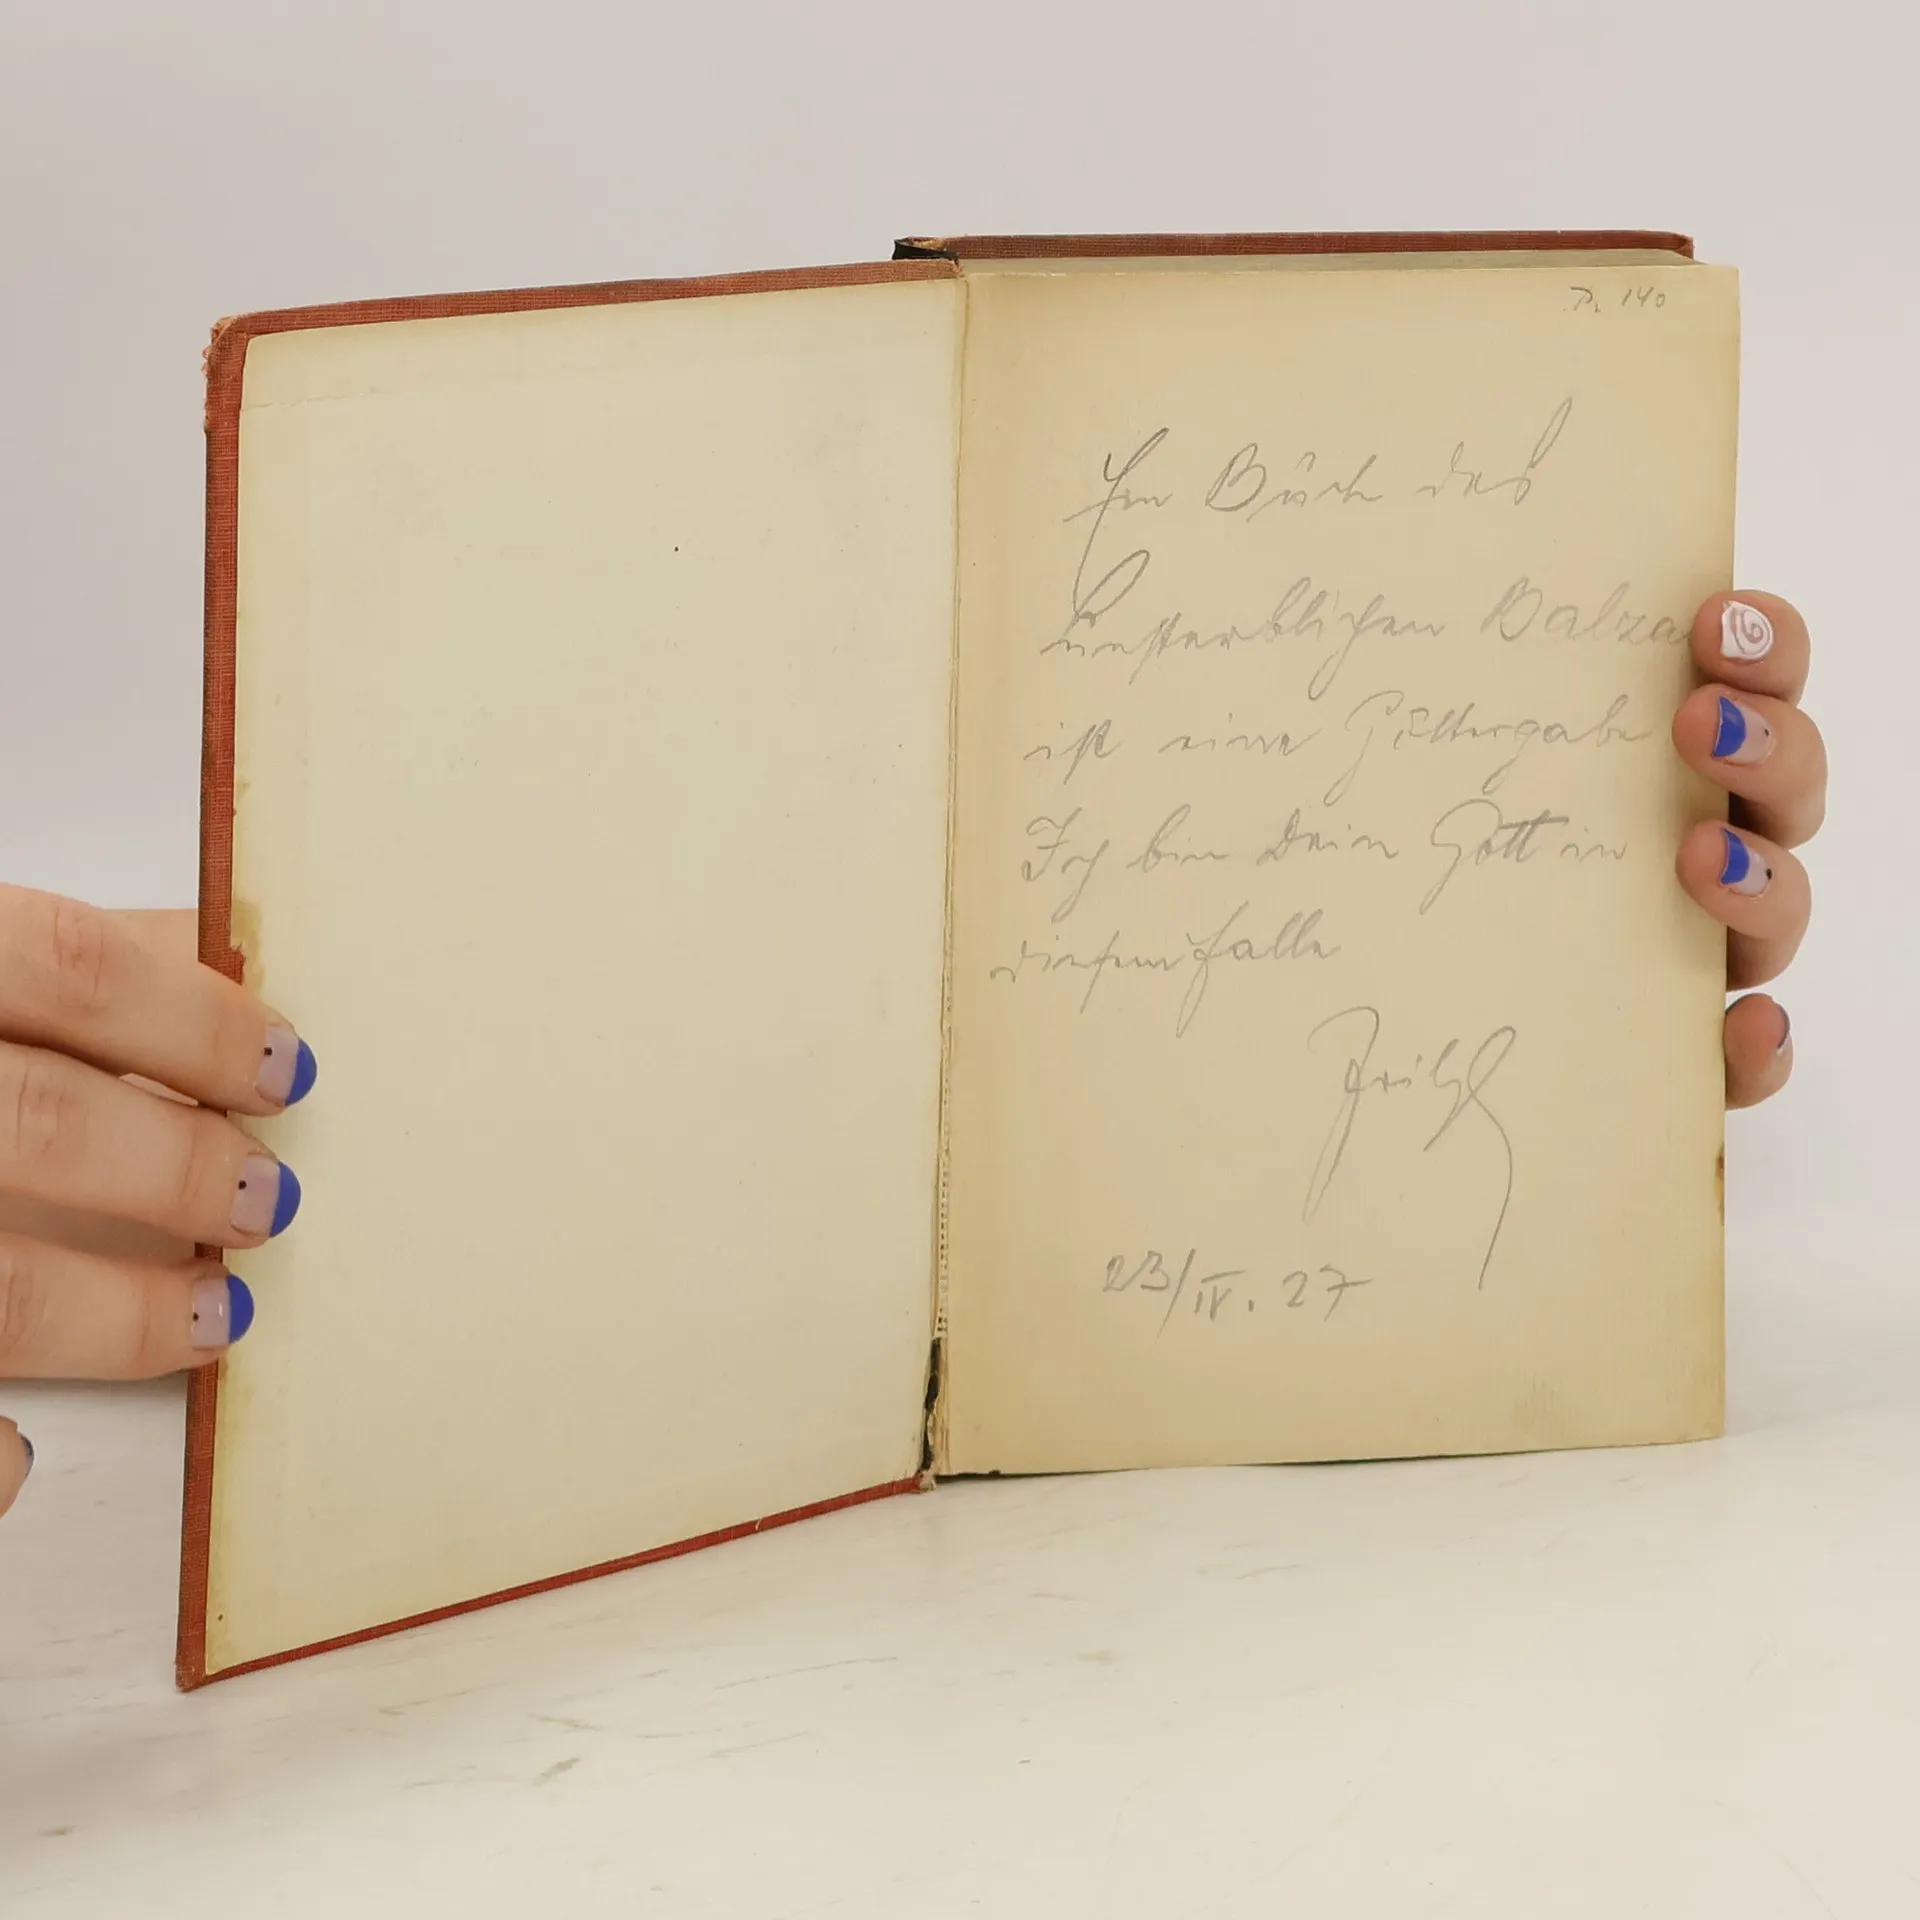 P. 140
Ein Buch des
unsterblichen Balza
ist eine Göttergabe
Ich bin Dein Gott in
diesem Falle
Fritzl
23/IV. 27